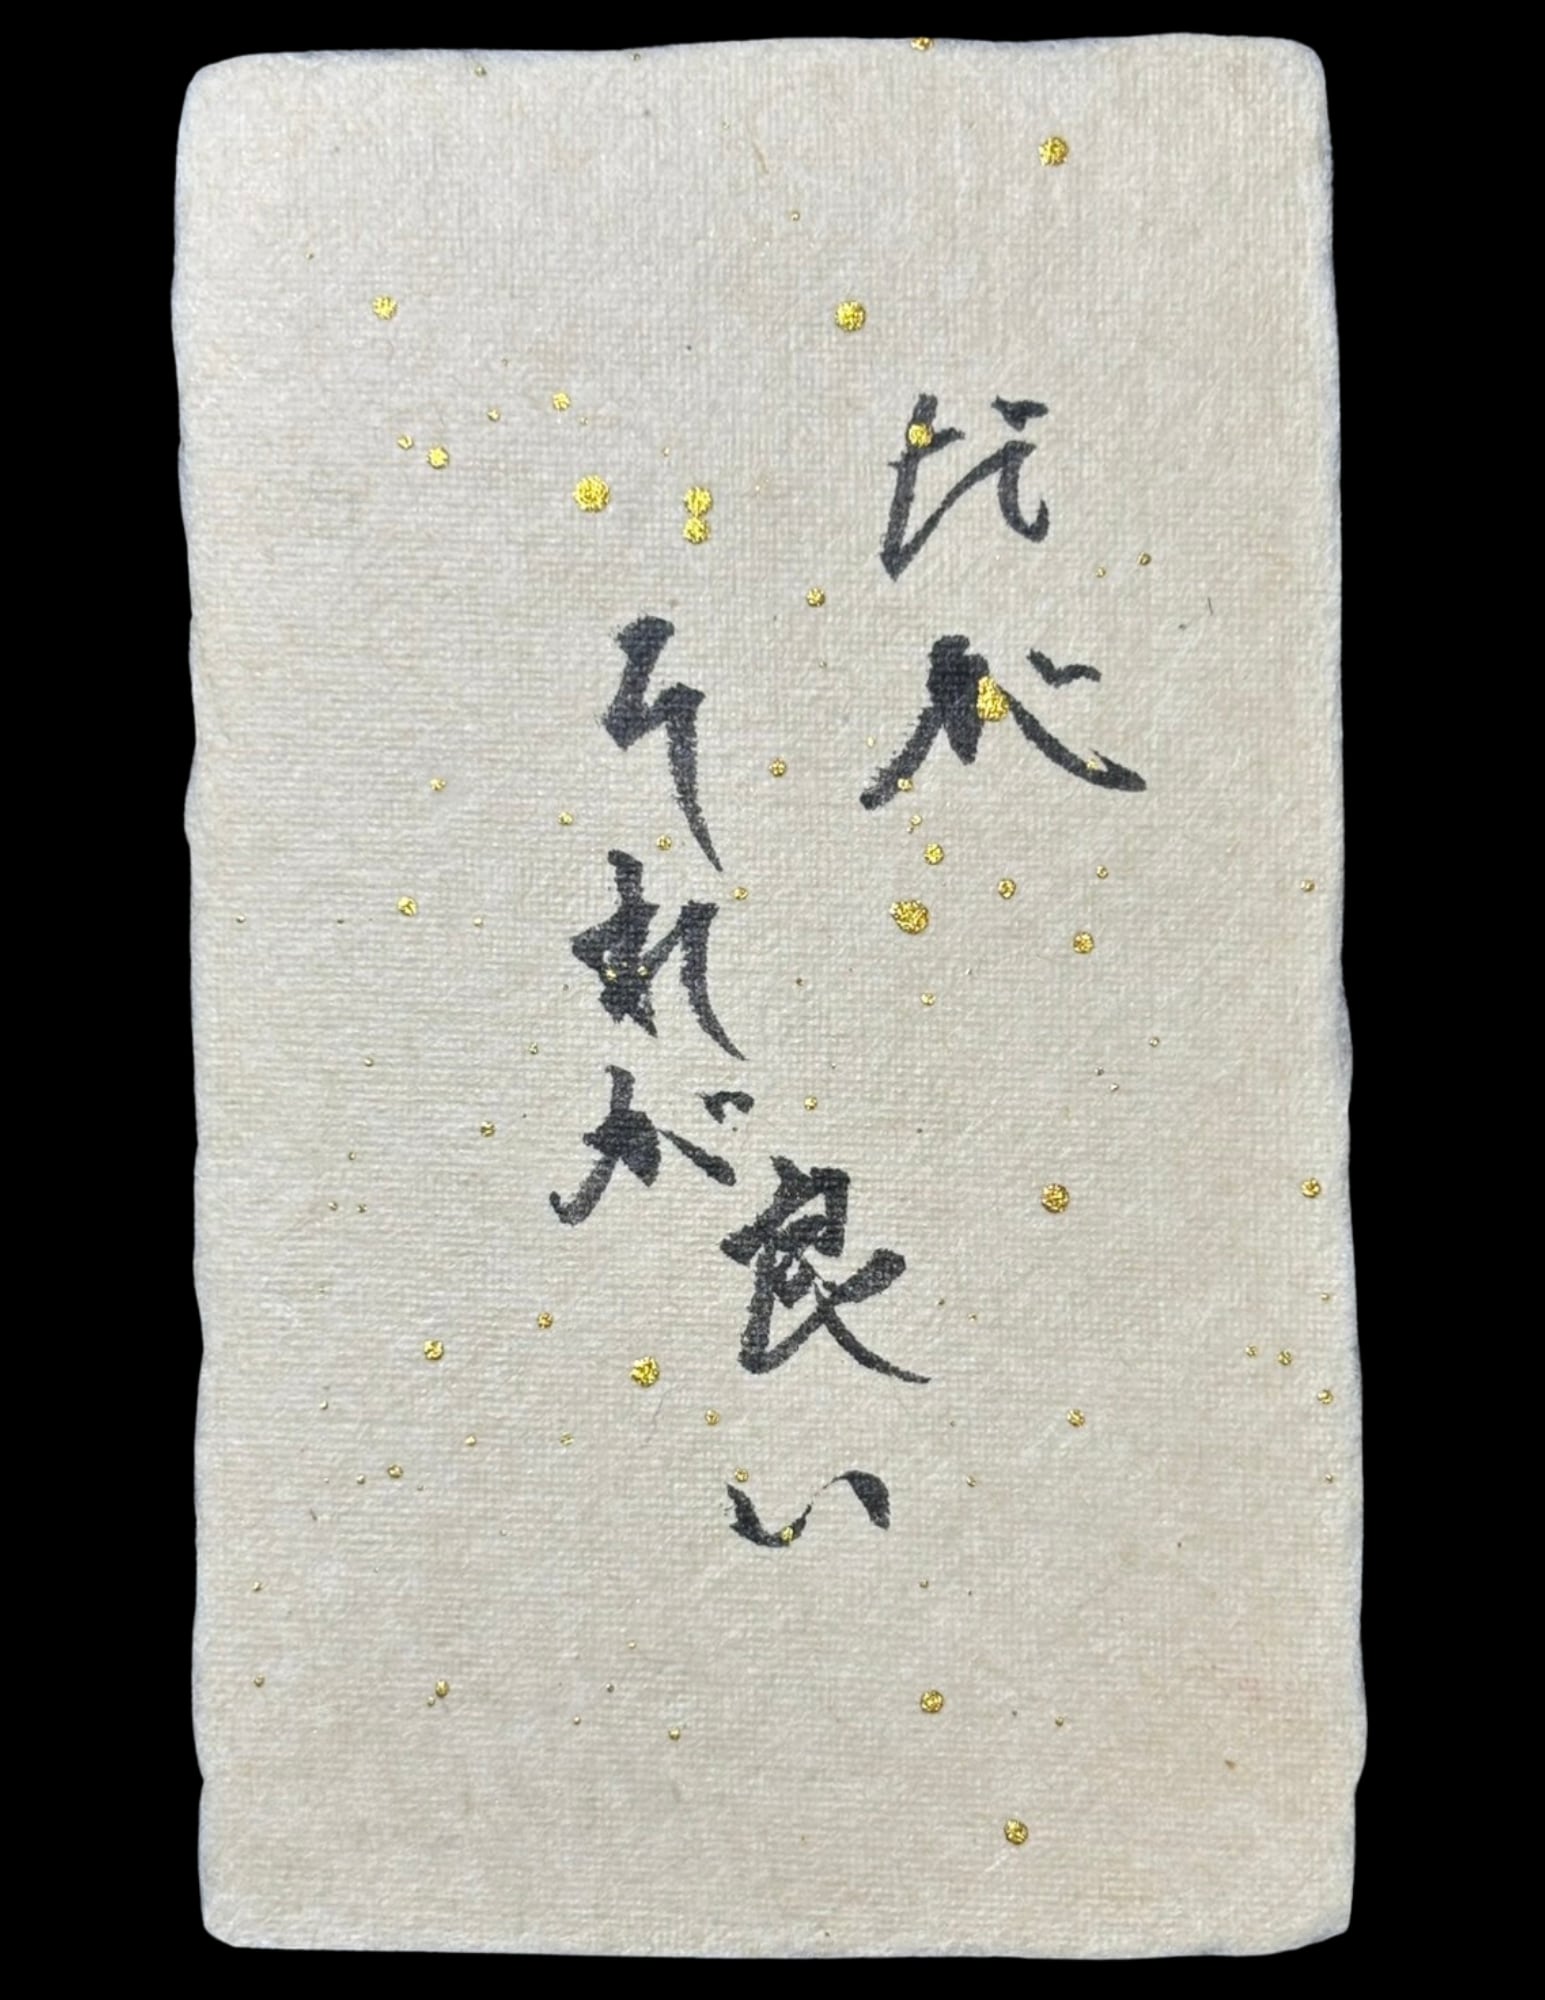 だが
それが良い